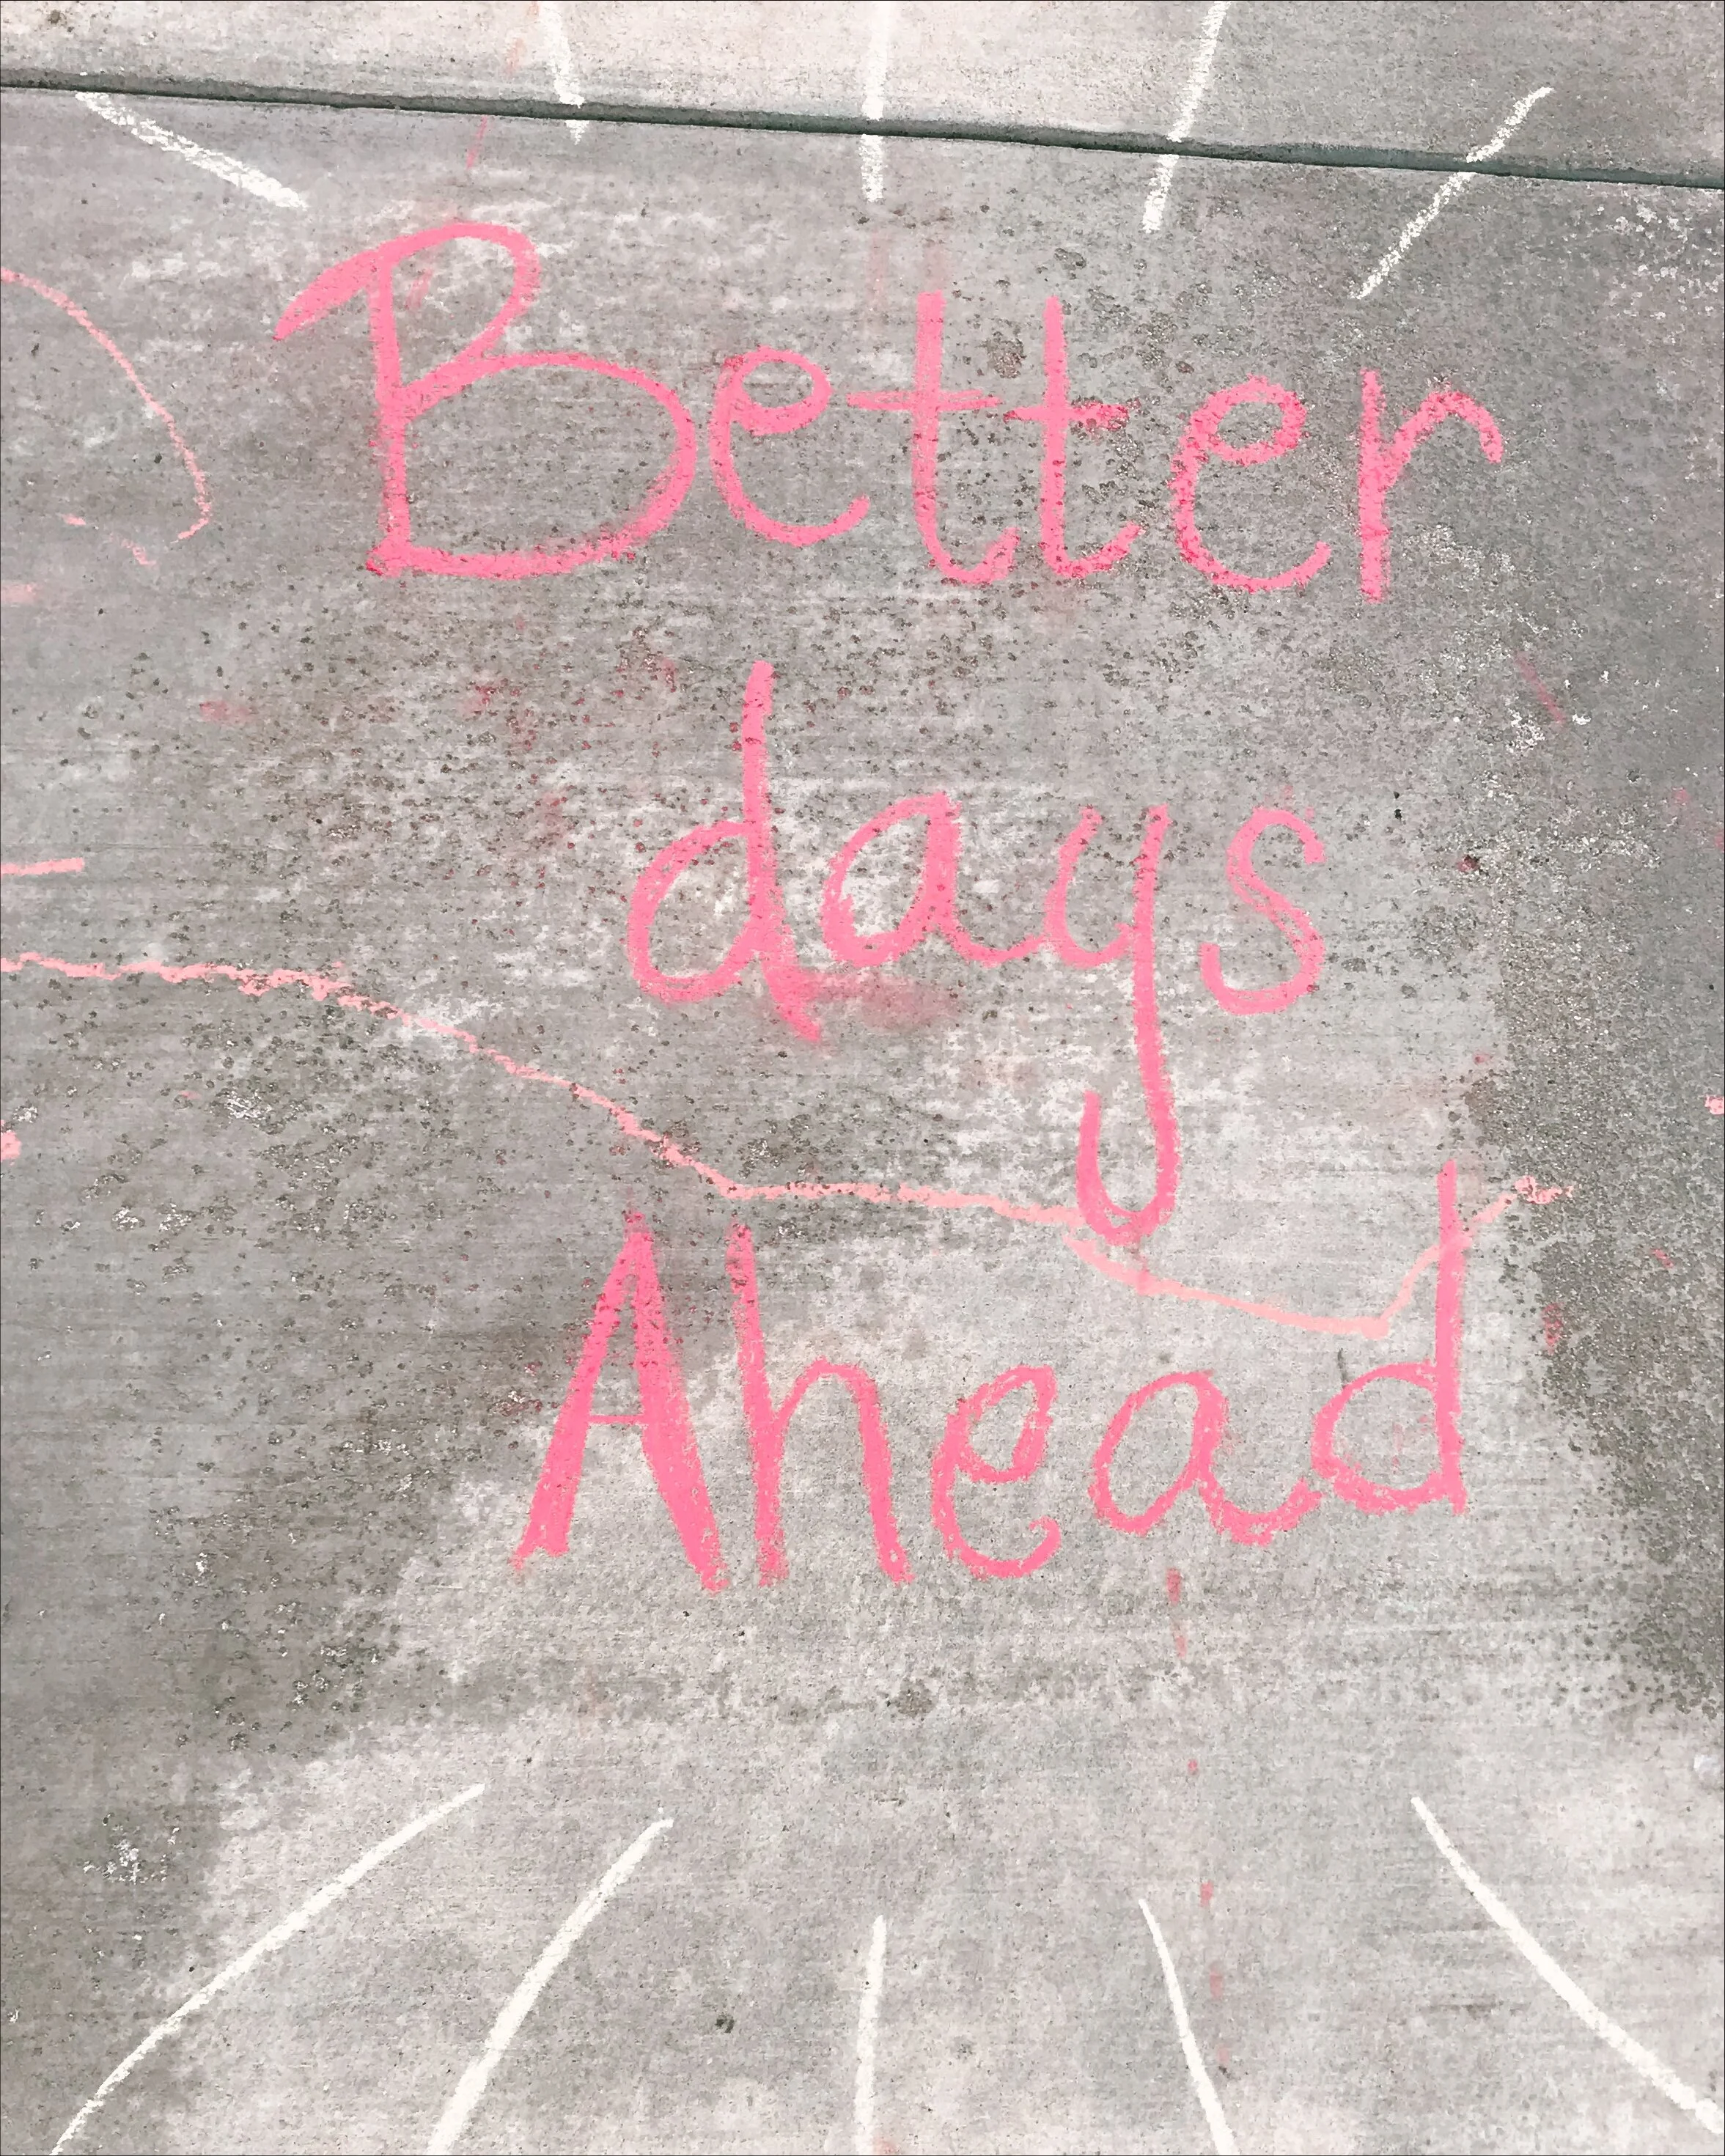 Better
days
Ahead